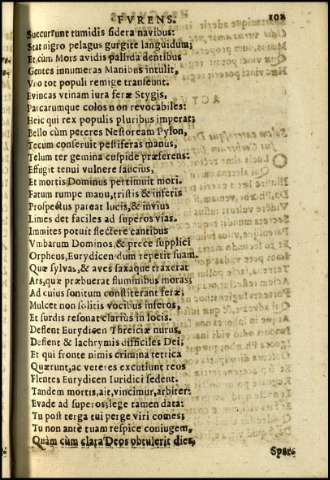 FVRENS. 102
Succurrunt tumidis sidera navibus:
Stat nigro pelagus gurgite languidum;
Et cùm Mors avidis pallida dentibus
Gentes innumeras Manibus intulit,
Vno tot populi remige transeunt.
Evincas vtinam iura feræ Stygis,
Parcarumque colos non revocabiles:
Hîc qui rex populis pluribus imperat:
Bello cùm peteres Nestoream Pylon,
Tecum conseruit pestiferas manus,
Telum ter gemina cuspide præferens:
Effugit tenui vulnere saucius,
Et mortis Dominus pertimuit mori.
Fatum rumpe manu, tristis & inferis
Prospectus pateat lucis, & invius
Limes det faciles ad superos vias.
Immites potuit flectere cantibus
Vmbarum Dominos & prece supplici
Orpheus, Eurydicen dum repetit suam.
Quæ sylvas, & aves saxaque traxerat
Ars, quæ præbuerat fluminibus moras,
Ad cuius sonitum constiterant feræ;
Mulcet non solitis vocibus inferos,
Et surdis resonat clarius in locis.
Deflent Eurydicen Threiciæ nurus,
Deflent & lachrymis difficiles Dei;
Et qui fronte nimis crimina tetrica
Quærunt, ac veteres excutiunt reos
Flentes Eurydicen Iuridici sedent.
Tandem mortis, ait, vincimur, arbiter:
Evade ad superos; lege tamen data:
Tu post terga tui perge viri comes;
Tu non ante tuam respice coniugem,
Quàm cùm clara Deos obtulerit dies,
Spar-